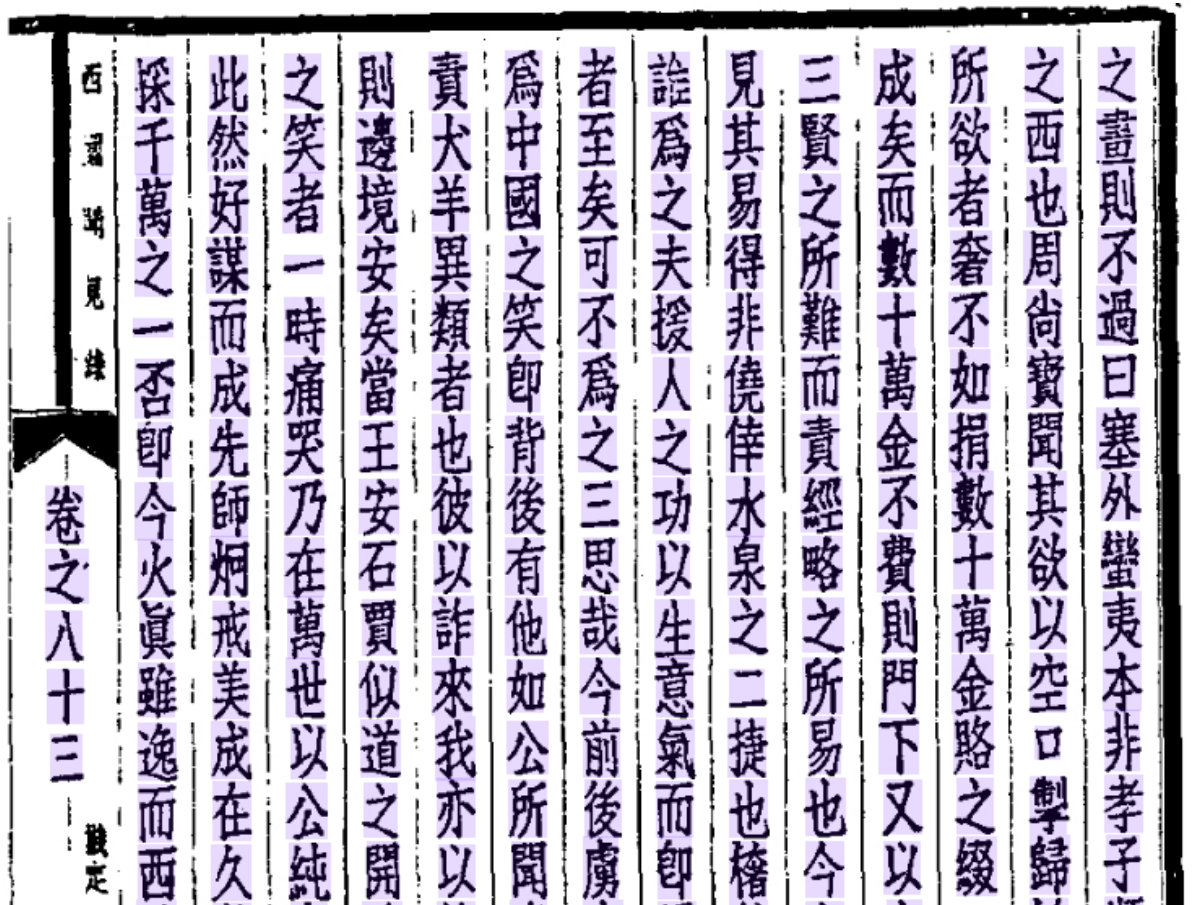 之畫則不過曰塞外蠻夷本非孝子
之西也周尙寶聞其欲以空口掣歸
所欲者奢不如捐數十萬金賂之綴
成矣而數十萬金不費則門下又以
三賢之所難而責經略之所易也今
見其易得非僥倖水泉之二捷也
誰爲之夫援人之功以生意氣而卽
者至矣可不爲之三思哉今前後虜
爲中國之笑卽背後有他如公所聞
責犬羊異類者也彼以詐來我亦以
則邊境安矣當王安石賈似道之開
之笑者一時痛哭乃在萬世以公純
此然好謀而成先師炯戒美成在久
採千萬之一否卽今火眞雖逸而西
西 見
卷之八十三
定